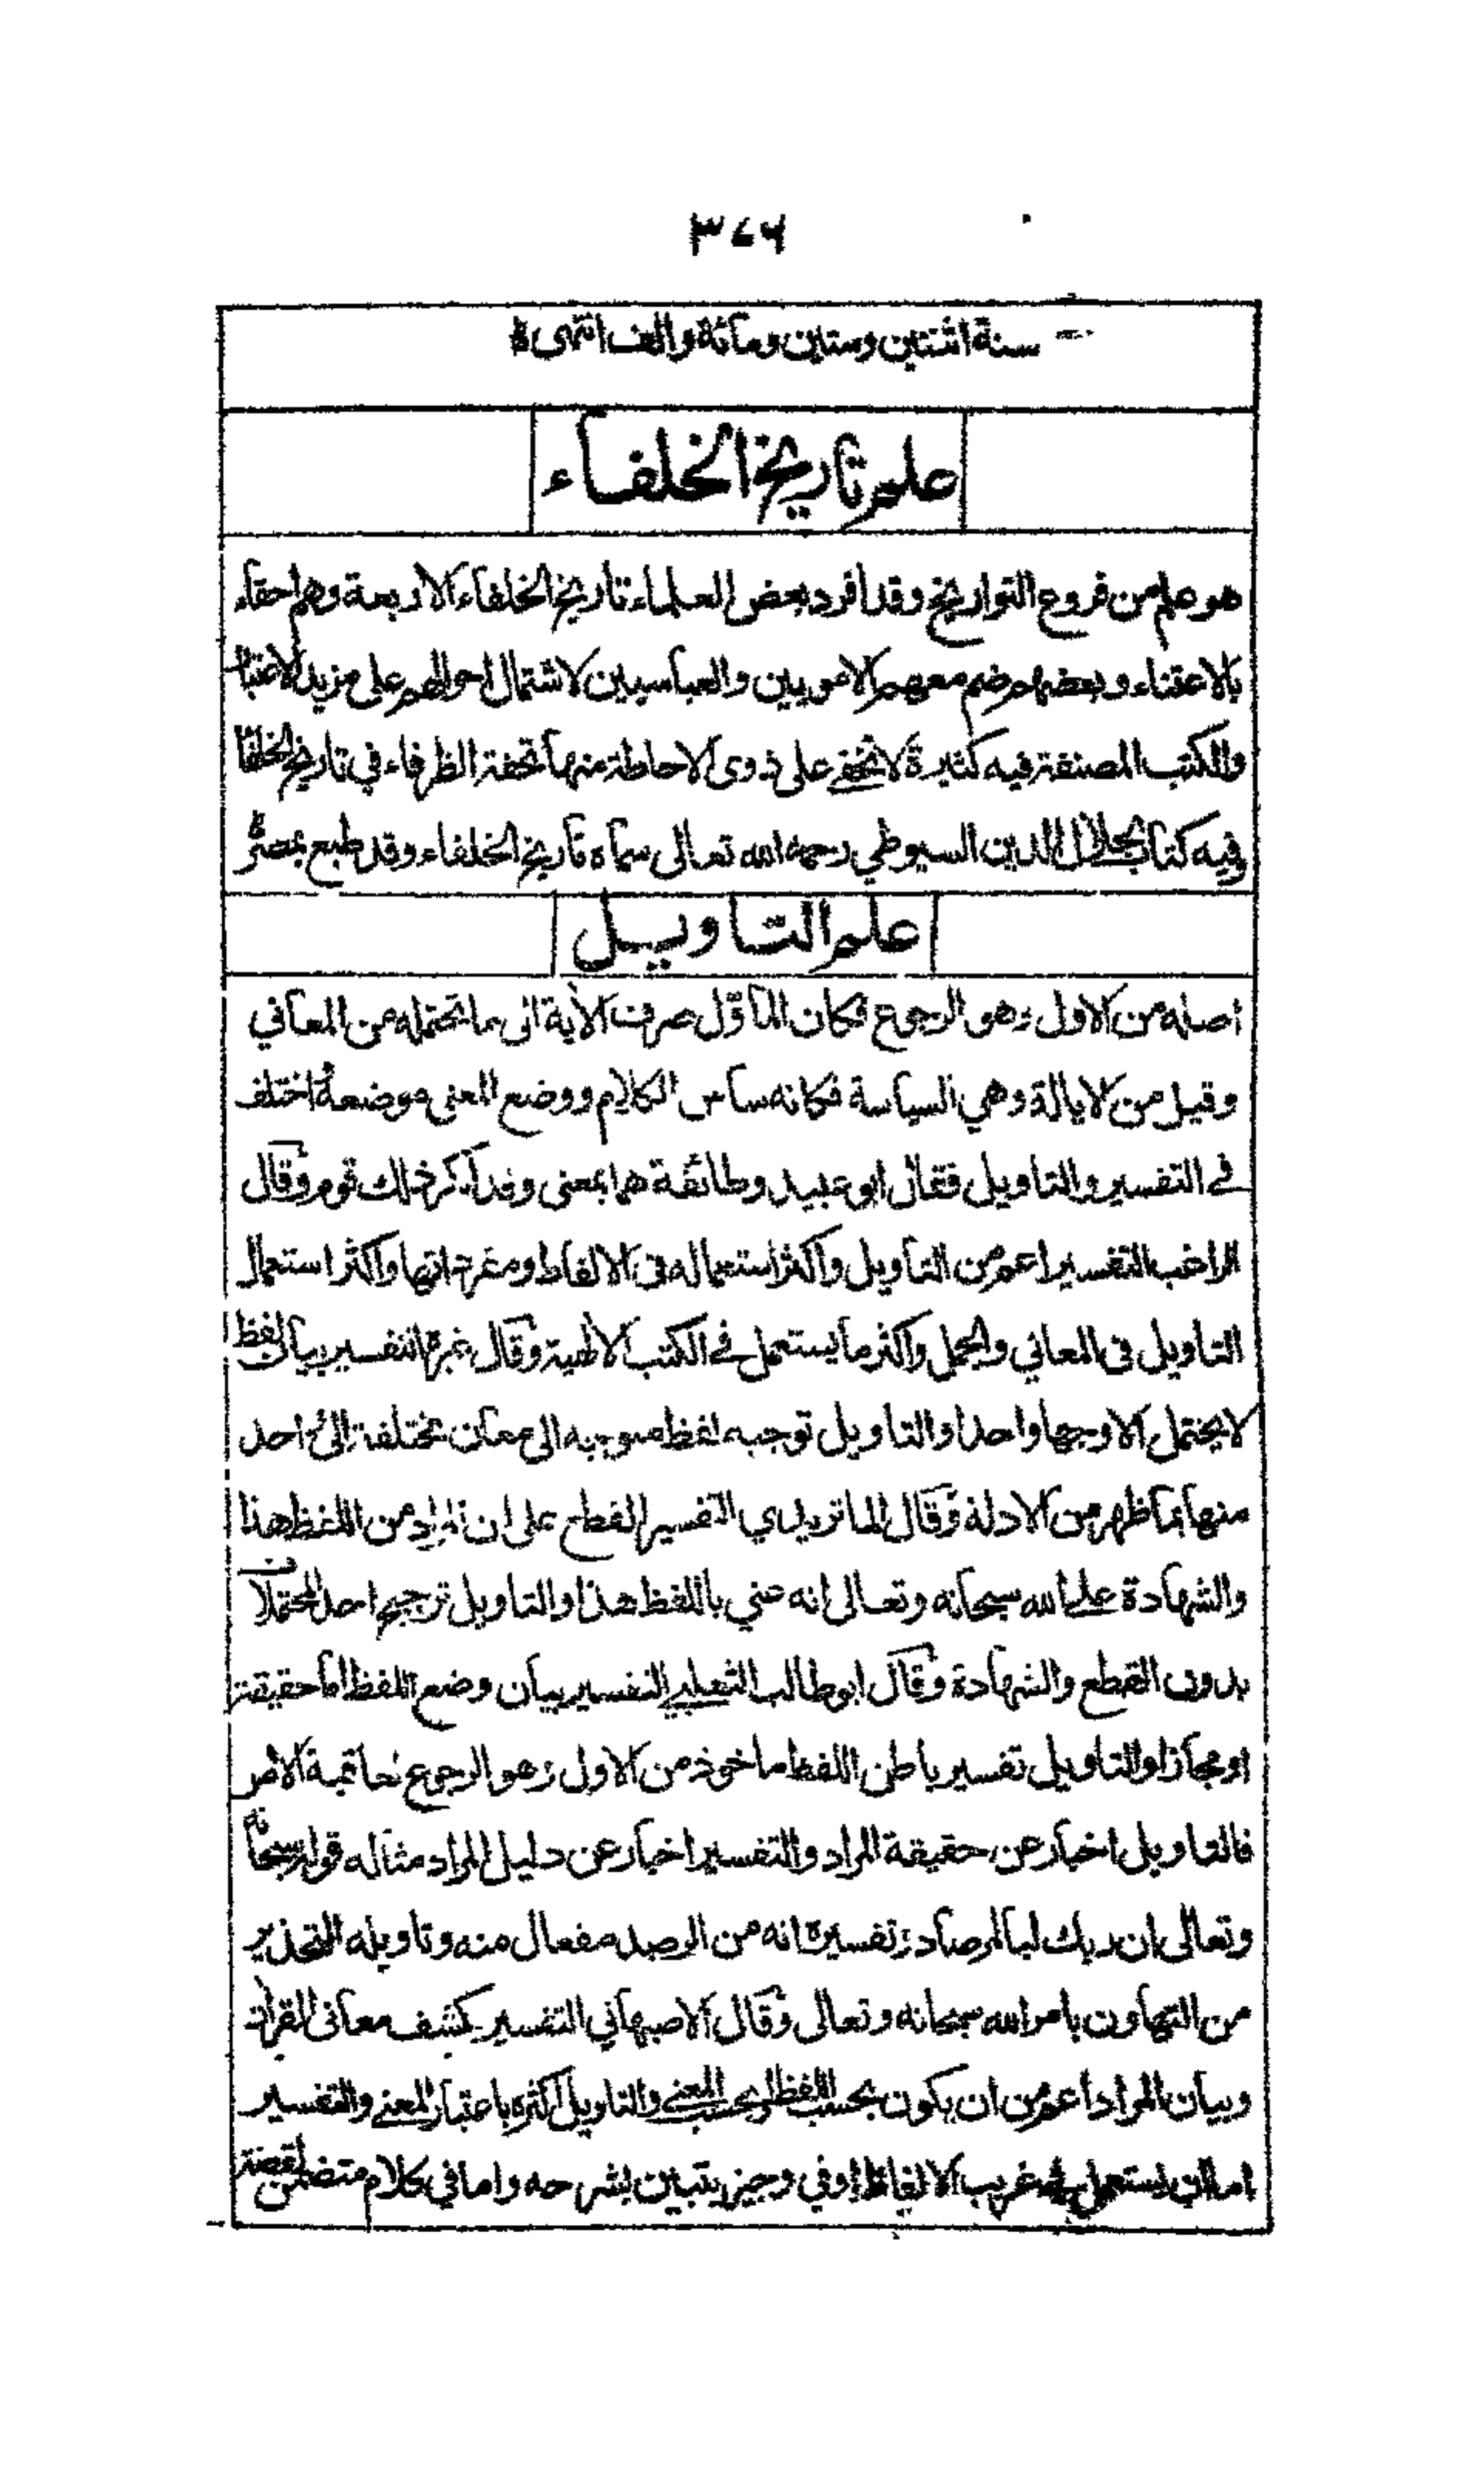 ٣٤٦
سنة اثنتين وستين ومائة والف انتهى
علم تاريخ الخلفاء
هو علم من فروع التواريخ وقد افرد بعض العلماء تاريخ الخلفاء الاربعة وهم احقاء
بالاعتناء وبعضهم ضم معهم الامويين والعباسيين لاشتمال احوالهم على مزيد الاعتبا
والكتب المصنفة فيه كثيرة لا تخفى على ذوى الاحاطة منها تحفة الظرفاء في تاريخ الخلفا
وفيه كتاب لجلال الدين السيوطي رحمه الله تعالى سماه تاريخ الخلفاء وقد طبع بمصر
علم التاويل
اصله من الاول وهو الرجوع فكان الماوّل صرف الاية الى ما تحتمله من المعاني
وقيل من الايالة وهي السياسة فكانه ساس الكلام ووضع المعنى موضعه اختلف
في التفسير والتاويل فقال ابو عبيد وطائفة هما بمعنى وقد انكر ذلك قوم وقال
الراغب التفسير اعم من التاويل واكثر استعماله في الالفاظ ومفرداتها واكثر استعمال
التاويل في المعاني والجمل واكثر ما يستعمل في الكتب الالهية وقال غيره التفسير بيان لفظ
لا يحتمل الا وجها واحدا والتاويل توجيه لفظ متوجه الى معان مختلفة الى احد
منها بما ظهر من الادلة وقال الماتريدي التفسير القطع على ان المراد من اللفظ هذا
والشهادة على الله سبحانه وتعالى انه عني باللفظ هذا والتاويل ترجيح احد المحتملات
بدون القطع والشهادة وقال ابو طالب الثعلبي التفسير بيان وضع اللفظ اما حقيقة
او مجازا والتاويل تفسير باطن اللفظ ماخوذ من الاول وهو الرجوع لعاقبة الامر
فالتاويل اخبار عن حقيقة المراد والتفسير اخبار عن دليل المراد مثاله قوله سبحانه
وتعالى ان ربك لبالمرصاد وتفسيره انه من الرصد مفعال منه وتاويله التحذير
من التهاون بامر الله سبحانه وتعالى وقال الاصبهاني التفسير كشف معاني القران
وبيان المراد اعم من ان يكون بحسب اللفظ او بحسب المعنى والتاويل اكثره باعتبار المعنى والتفسير
اما ان يستعمل في غريب الالفاظ او في وجيز يتبين بشرحه واما في كلام متضمن لقصة